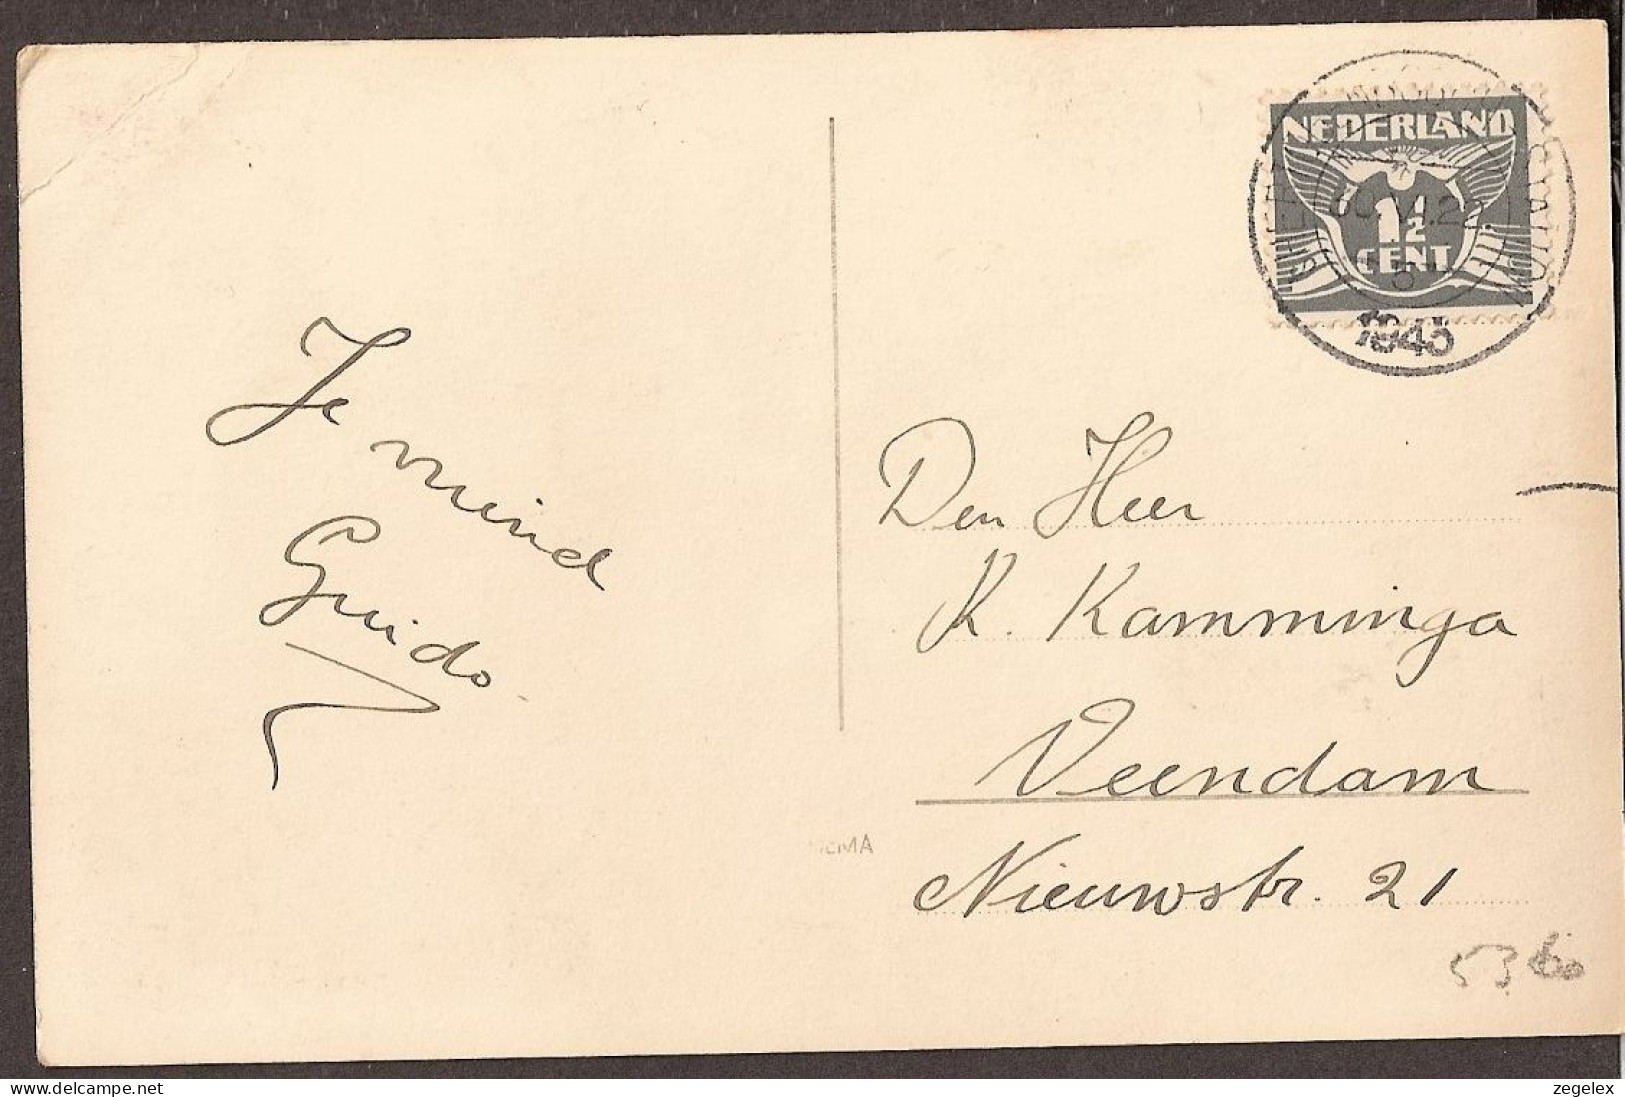 NEDERLAND
1½
CENT
1943
Je
vriend
Guido
Den Heer
K. Kamminga
Veendam
Nieuwstr. 21
53
delcampe.net
zegelex